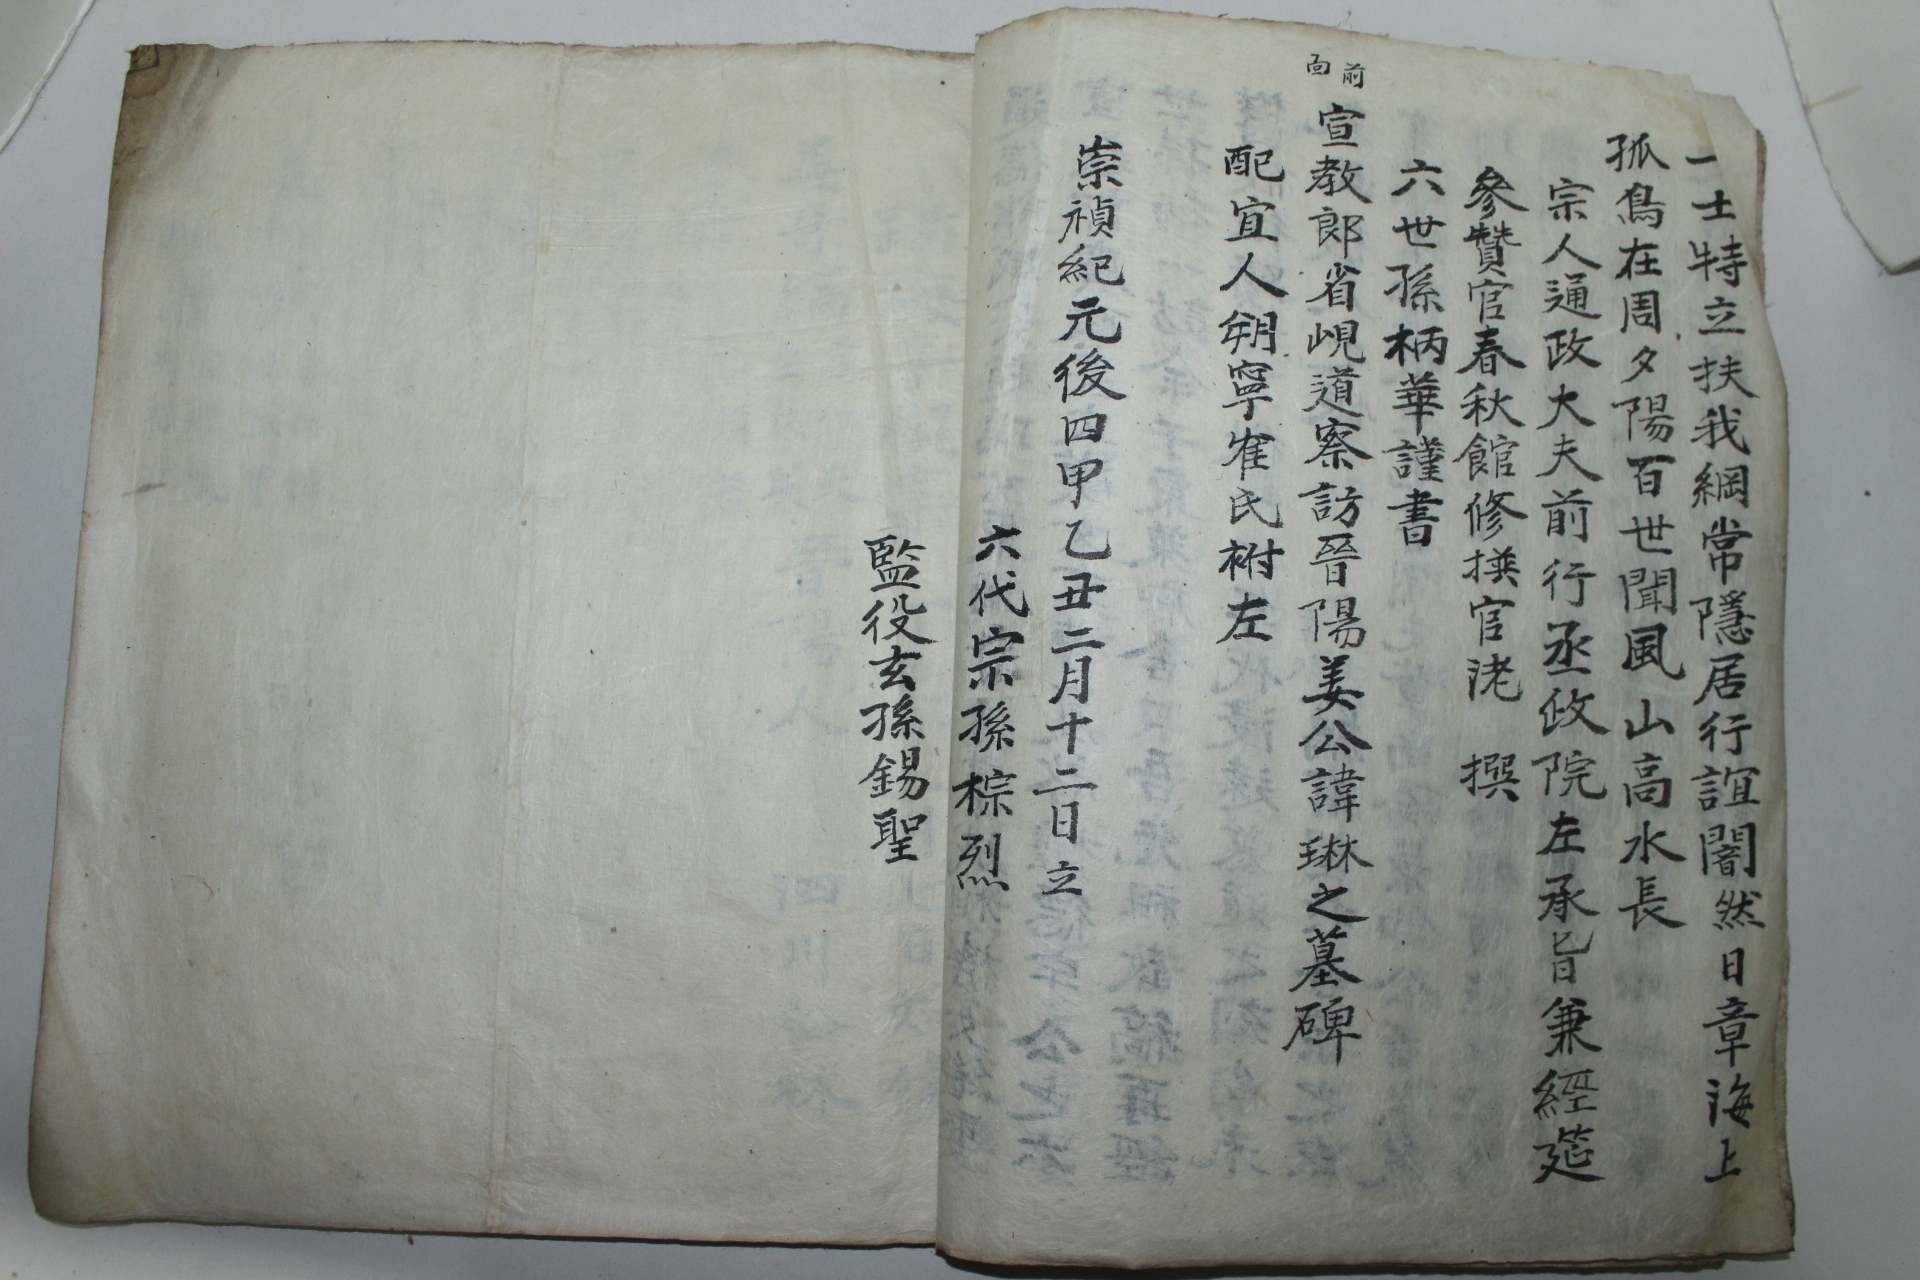 一士特立扶我綱常隱居行誼闇然日章海上
孤鳥在周夕陽百世聞風山高水長
宗人通政大夫前行丞政院左承旨兼經筵
參贊官春秋館修撰官洖　撰
六世孫柄華謹書
前面
宣教郎省峴道察訪晉陽姜公諱琳之墓碑
配宜人朔寧崔氏祔左
崇禎紀元後四甲乙丑二月十二日立
六代宗孫棕烈
監役玄孫錫聖